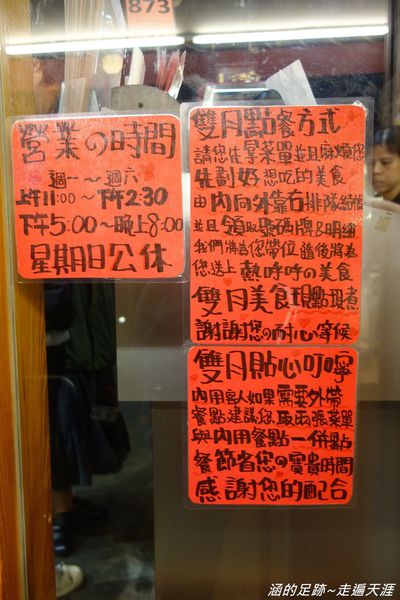 873
營業の時間
週一～週六
上午11:00～下午2:30
下午5:00～晚上8:00
星期日公休
雙月點餐方式
請您先拿菜單並且麻煩您
先劃好想吃的美食
由內向外靠右排隊結帳
並且領取號碼牌&明細
我們將為您帶位隨後將為
您送上熱呼呼の美食
雙月美食現點現煮
謝謝您の耐心等候
雙月貼心叮嚀
內用客人如果需要外帶
餐點建議您取兩張菜單
與內用餐點一併點
餐節省您の寶貴時間
感謝您的配合
涵的足跡~走遍天涯